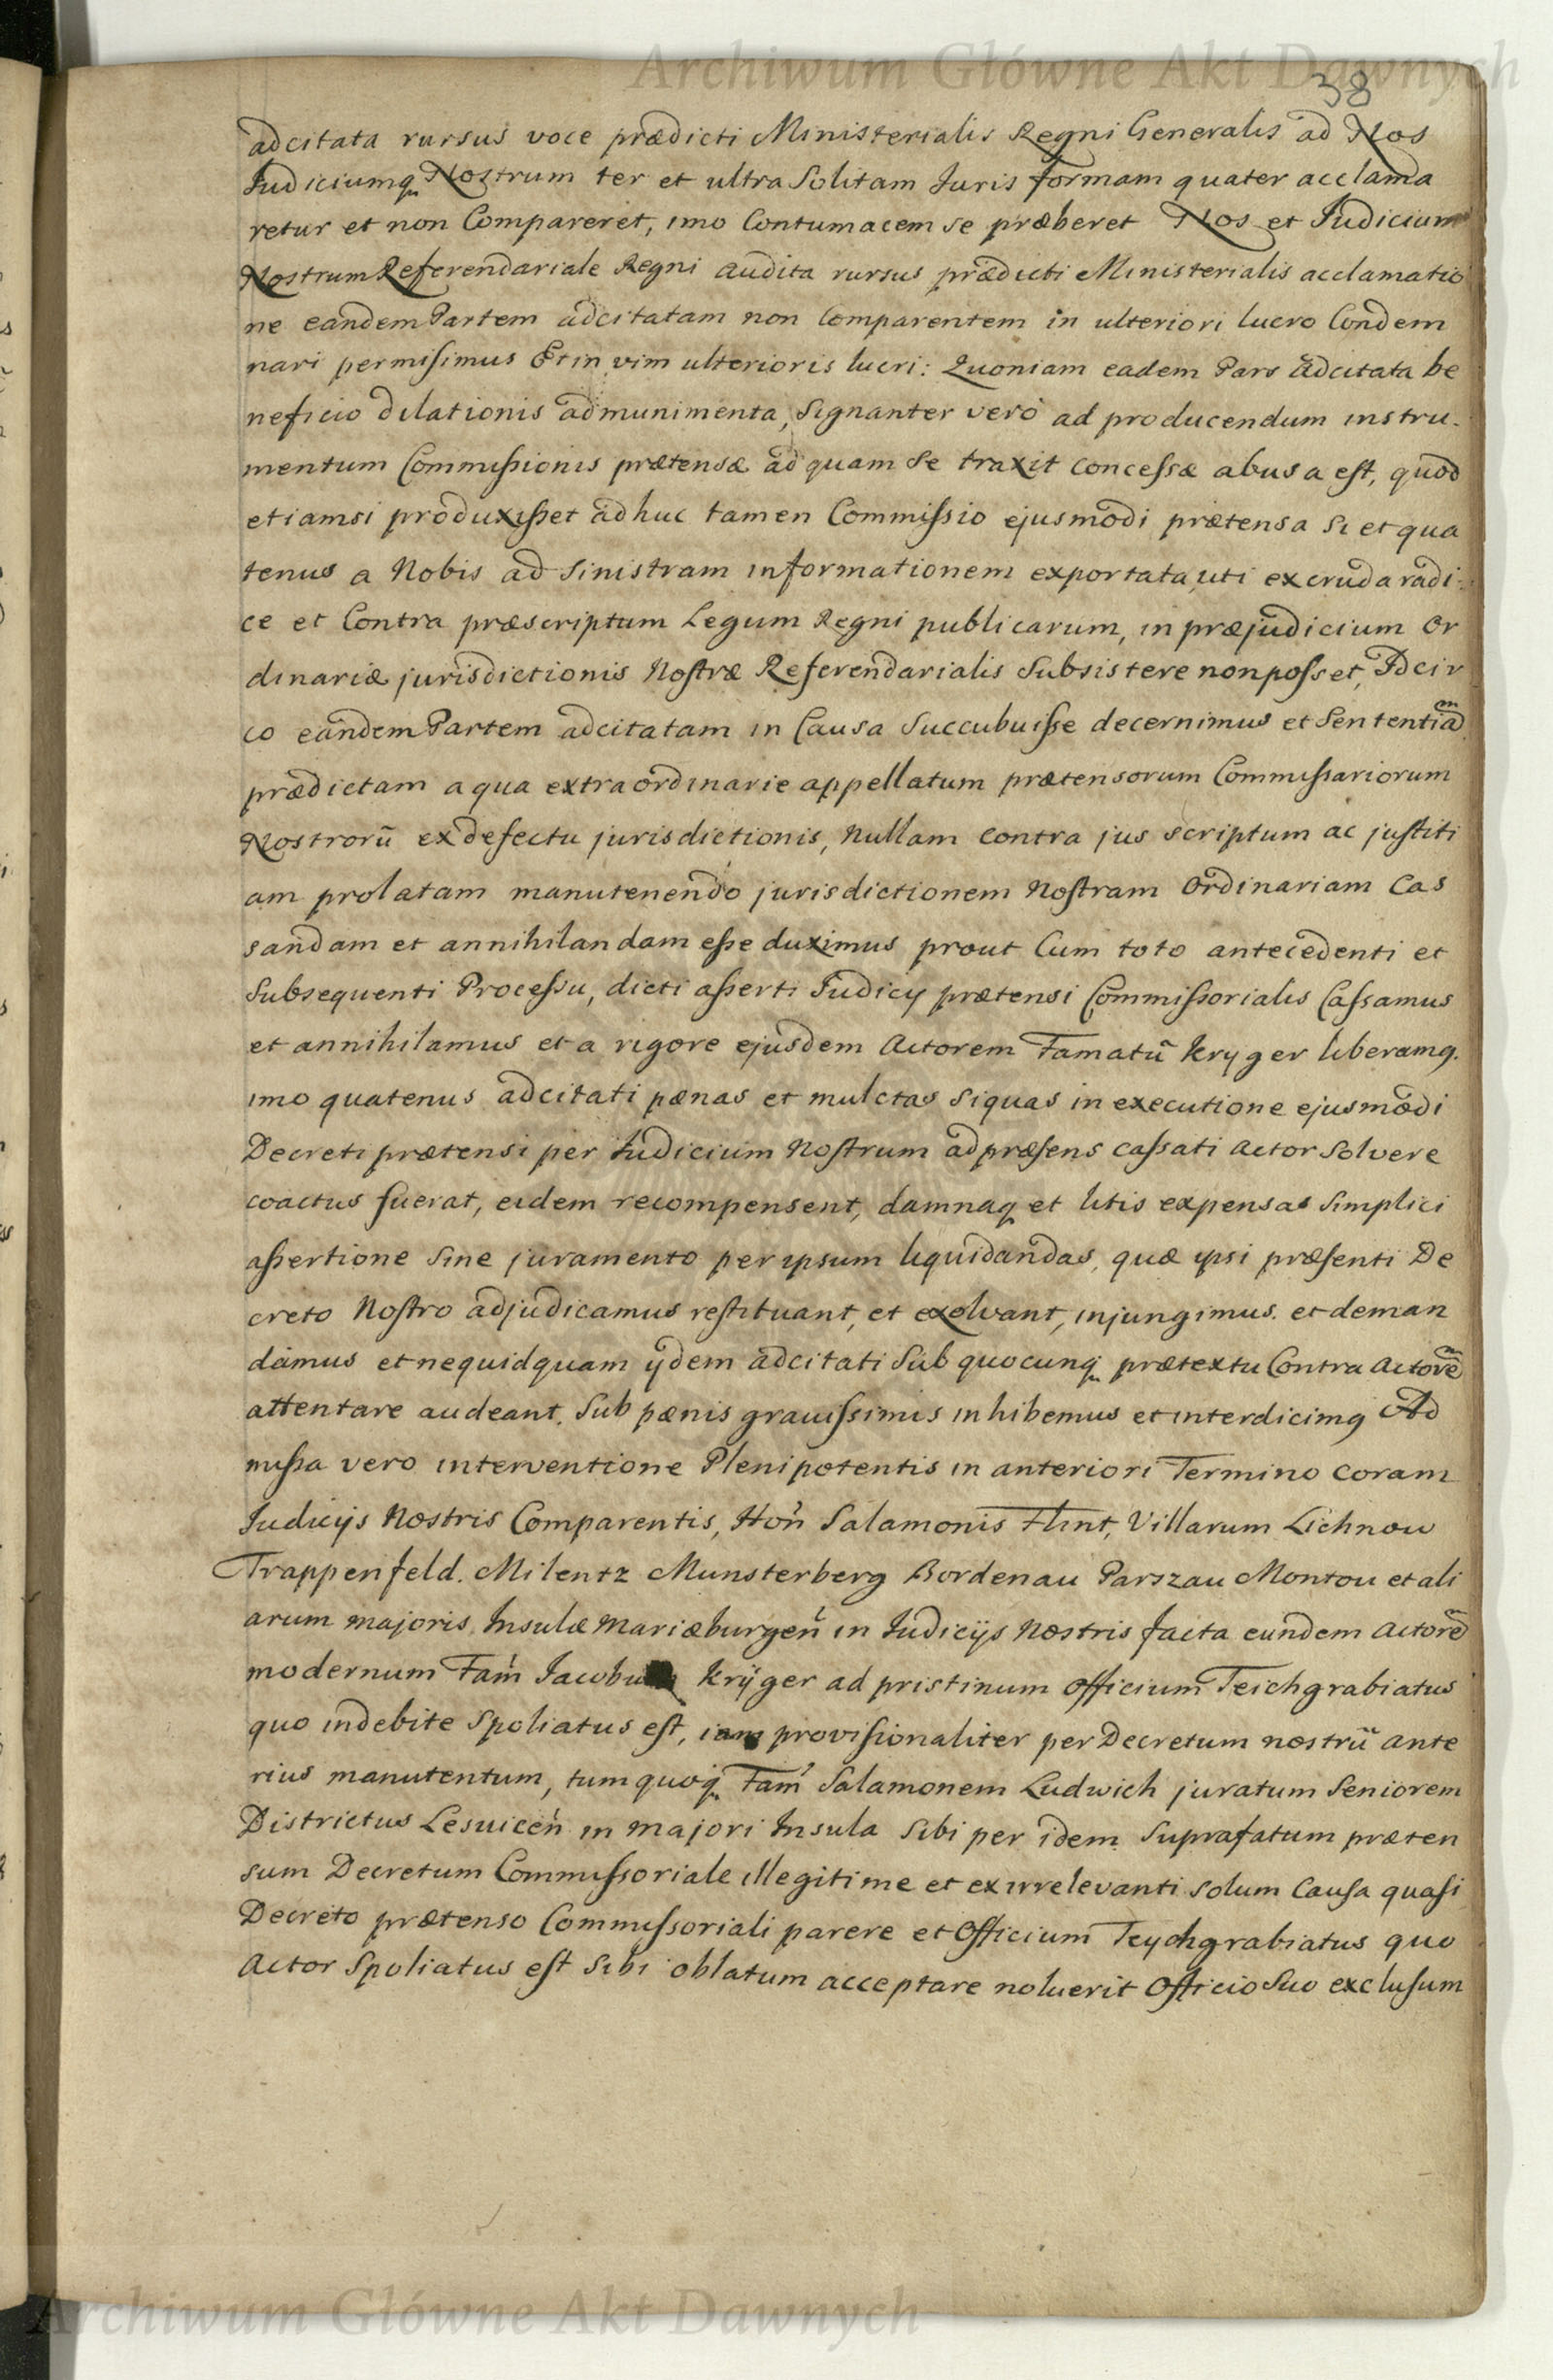 Archiwum Główne Akt Dawnych
38
adcitata rursus voce prædicti Ministerialis Regni Generalis ad Nos
Judiciumq Nostrum ter et ultra Solitam Juris formam quater acclama
retur et non Compareret, imo Contumacem se præberet Nos et Judicium
Nostrum Referendariale Regni audita rursus prædicti Ministerialis acclamatio
ne eandem Partem adcitatam non Comparentem in ulteriori lucro Condem
nari permisimus Et in vim ulterioris lucri: Quoniam eadem Pars adcitata be
neficio dilationis ad munimenta, Signanter verò ad producendum instru.
mentum Commissionis prætensæ ad quam se traxit concessæ abusa est, quod
etiamsi produxisset adhuc tamen Commissio ejusmodi prætensa si et qua
tenus a Nobis ad sinistram informationem exportata, uti ex cruda radi-
ce et Contra præscriptum Legum Regni publicarum, in præjudicium Or
dinariæ jurisdictionis Nostræ Referendarialis Subsistere non posset, Idcir
co eandem Partem adcitatam in Causa Succubuisse decernimus et Sententiam
prædictam a qua extraordinarie appellatum prætensorum Commissariorum
Nostrorũ ex defectu jurisdictionis, Nullam contra jus scriptum ac justiti
am prolatam manutenendo jurisdictionem Nostram Ordinariam Cas
sandam et annihilandam esse duximus prout Cum toto antecedenti et
Subsequenti Processu, dicti asserti Judicij prætensi Commissorialis Cassamus
et annihilamus et a rigore ejusdem Actorem Famatũ Kryger liberamq.
imo quatenus adcitati pænas et mulctas siquas in executione ejusmodi
Decreti prætensi per Judicium Nostrum ad præsens cassati Actor Solvere
coactus fuerat, eidem recompensent, damnaq et litis expensas Simplici
assertione Sine juramento per ipsum liquidandas, quæ ipsi præsenti De
creto Nostro adjudicamus restituant, et exolvant, injungimus. et deman
damus et nequidquam ijdem adcitati Sub quocunq prætextu Contra Actorẽ
attentare audeant. Sub pænis gravissimis inhibemus et interdicimq Ad
missa vero interventione Plenipotentis in anteriori Termino coram
Judicijs Nostris Comparentis, Hoñ Salamonis Flint, Villarum Lichnow
Trappenfeld. Milentz Munsterberg Bordenau Parszau Montou et ali
arum majoris Insulæ Mariæburgeñ in Judicijs Nostris facta eundem Actorẽ
modernum Fam̃ Jacobum Krÿger ad pristinum Officium Teichgrabiatus
quo indebite Spoliatus est, iam provisionaliter per Decretum nostrũ ante
rius manutentum, tum quoq Fam̃ Salamonem Ludwich juratum Seniorem
Districtus Lesviceñ in majori Insula Sibi per idem Suprafatum præten
sum Decretum Commissoriale illegitime et ex irrelevanti solum Causa quasi
Decreto prætenso Commissoriali parere et Officium Teychgrabiatus quo
Actor Spoliatus est Sibi oblatum acceptare noluerit Officio Suo exclusum
Archiwum Główne Akt Dawnych